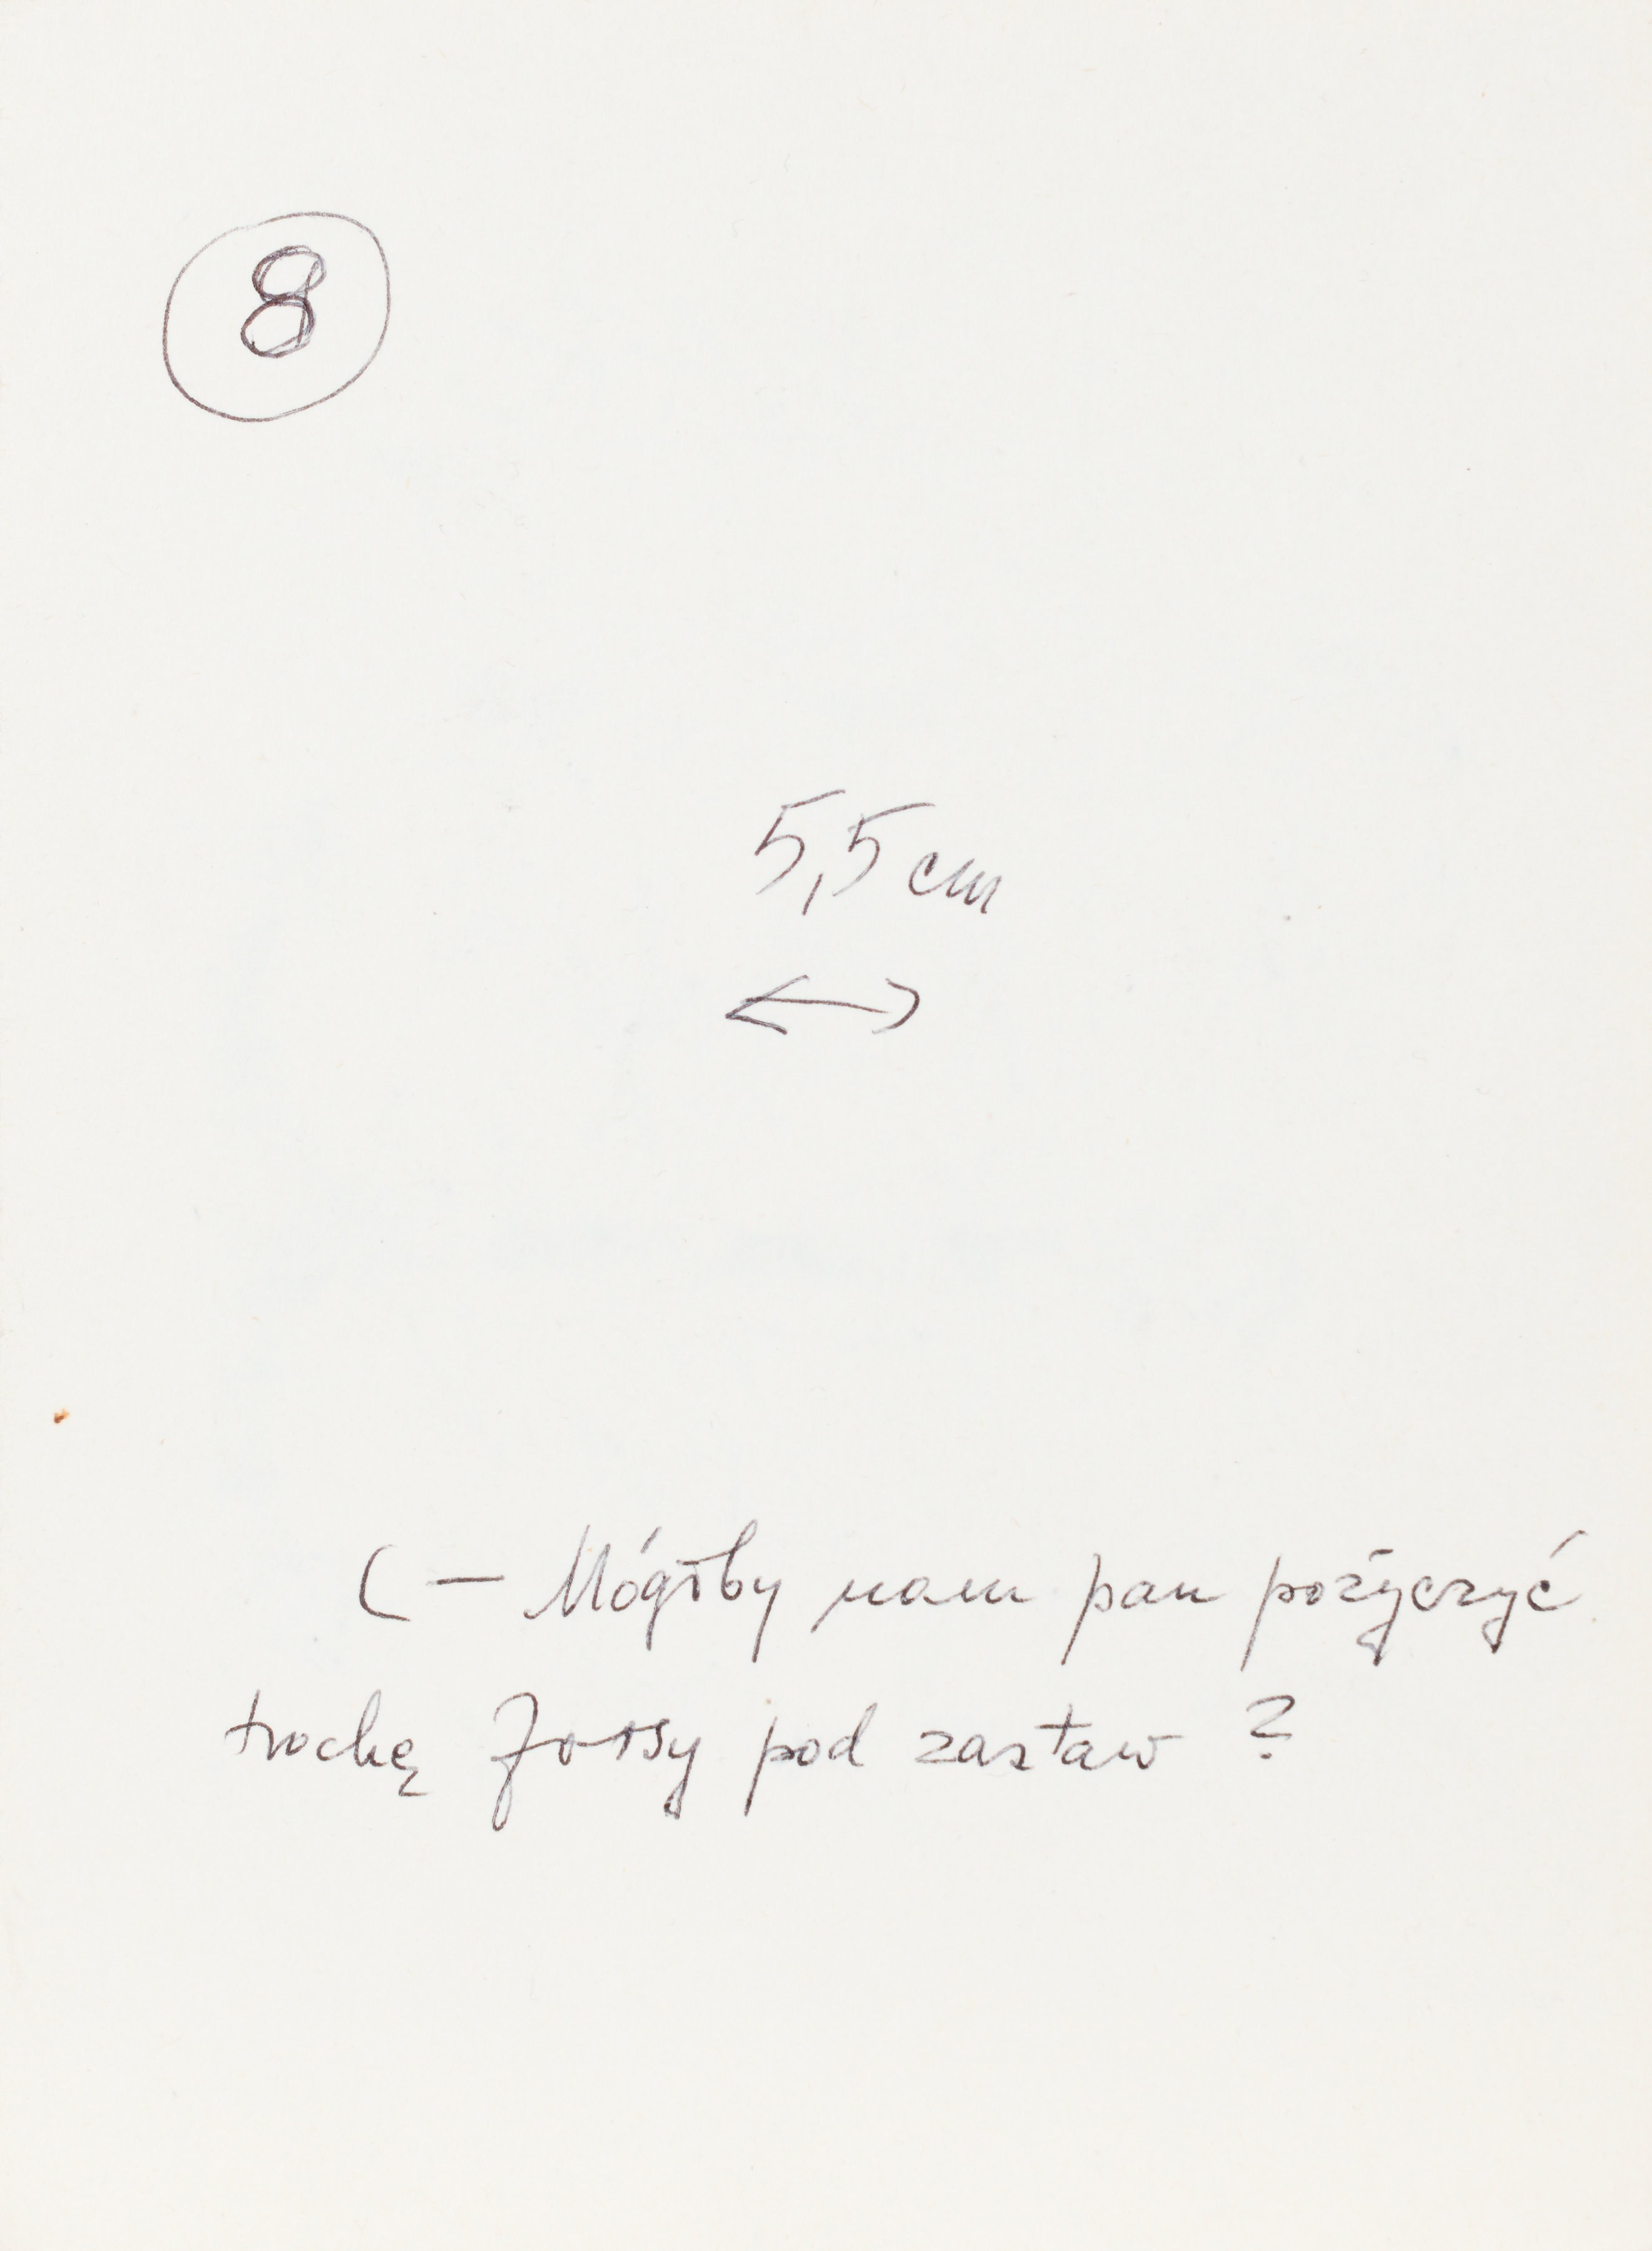 8
5,5 cm
( — Mógłby nam pan pożyczyć
trochę forsy pod zastaw ?